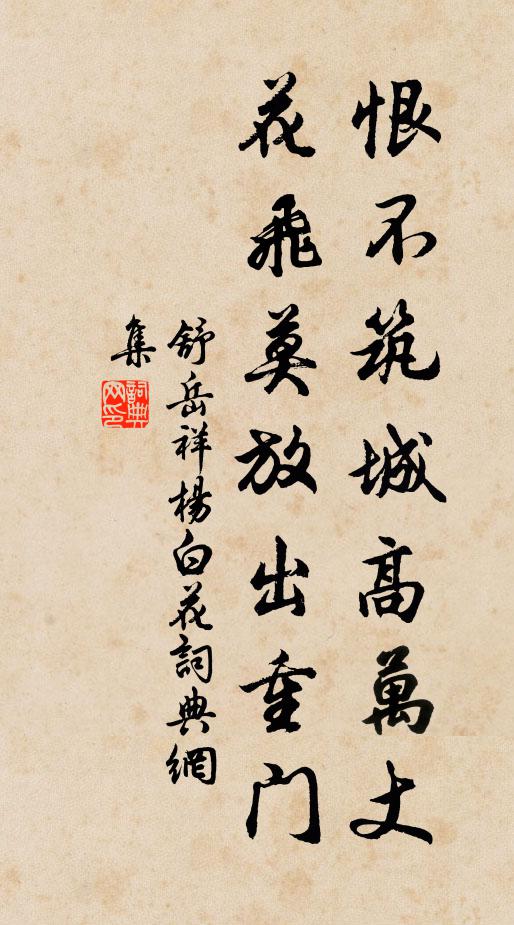 恨不筑城高萬丈
花飛莫放出重門
舒岳祥楊白花詞典網
集
詞典
网印